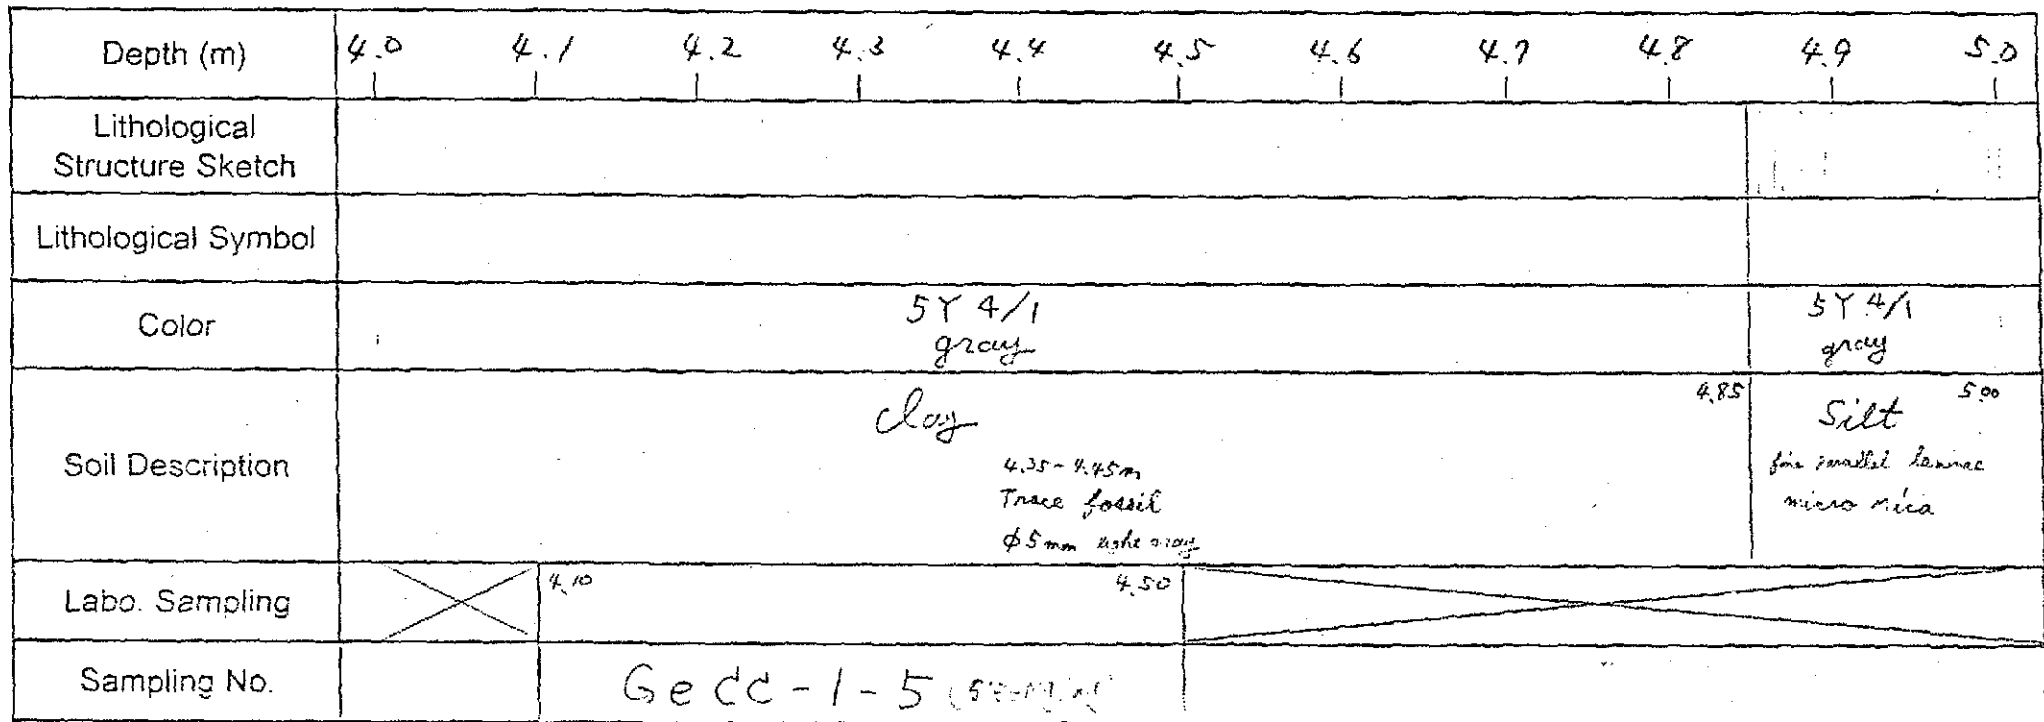 Depth (m) 4.0 4.1 4.2 4.3 4.4 4.5 4.6 4.7 4.8 4.9 5.0
Lithological
Structure Sketch
Lithological Symbol
Color
5Y 4/1
gray
5Y 4/1
gray
Soil Description
clay
4.35-4.45m
Trace fossil
φ5mm
4.85
5.00
Silt
fine parallel laminae
micro mica
Labo. Sampling 4.10 4.50
Sampling No. Gecd-1-5